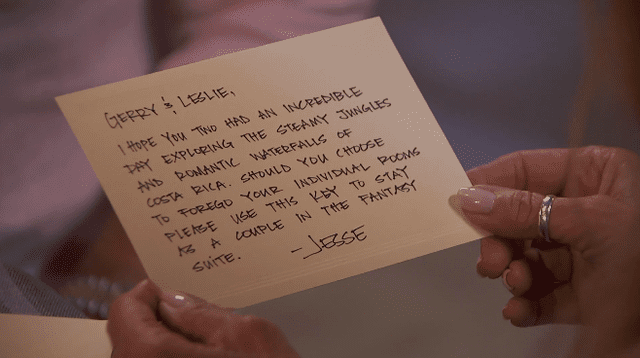 GERRY & LESLIE,
I HOPE YOU TWO HAD AN INCREDIBLE
DAY EXPLORING THE STEAMY JUNGLES
AND ROMANTIC WATERFALLS OF
COSTA RICA. SHOULD YOU CHOOSE
TO FOREGO YOUR INDIVIDUAL ROOMS
PLEASE USE THIS KEY TO STAY
AS A COUPLE IN THE FANTASY
SUITE.
-JESSE